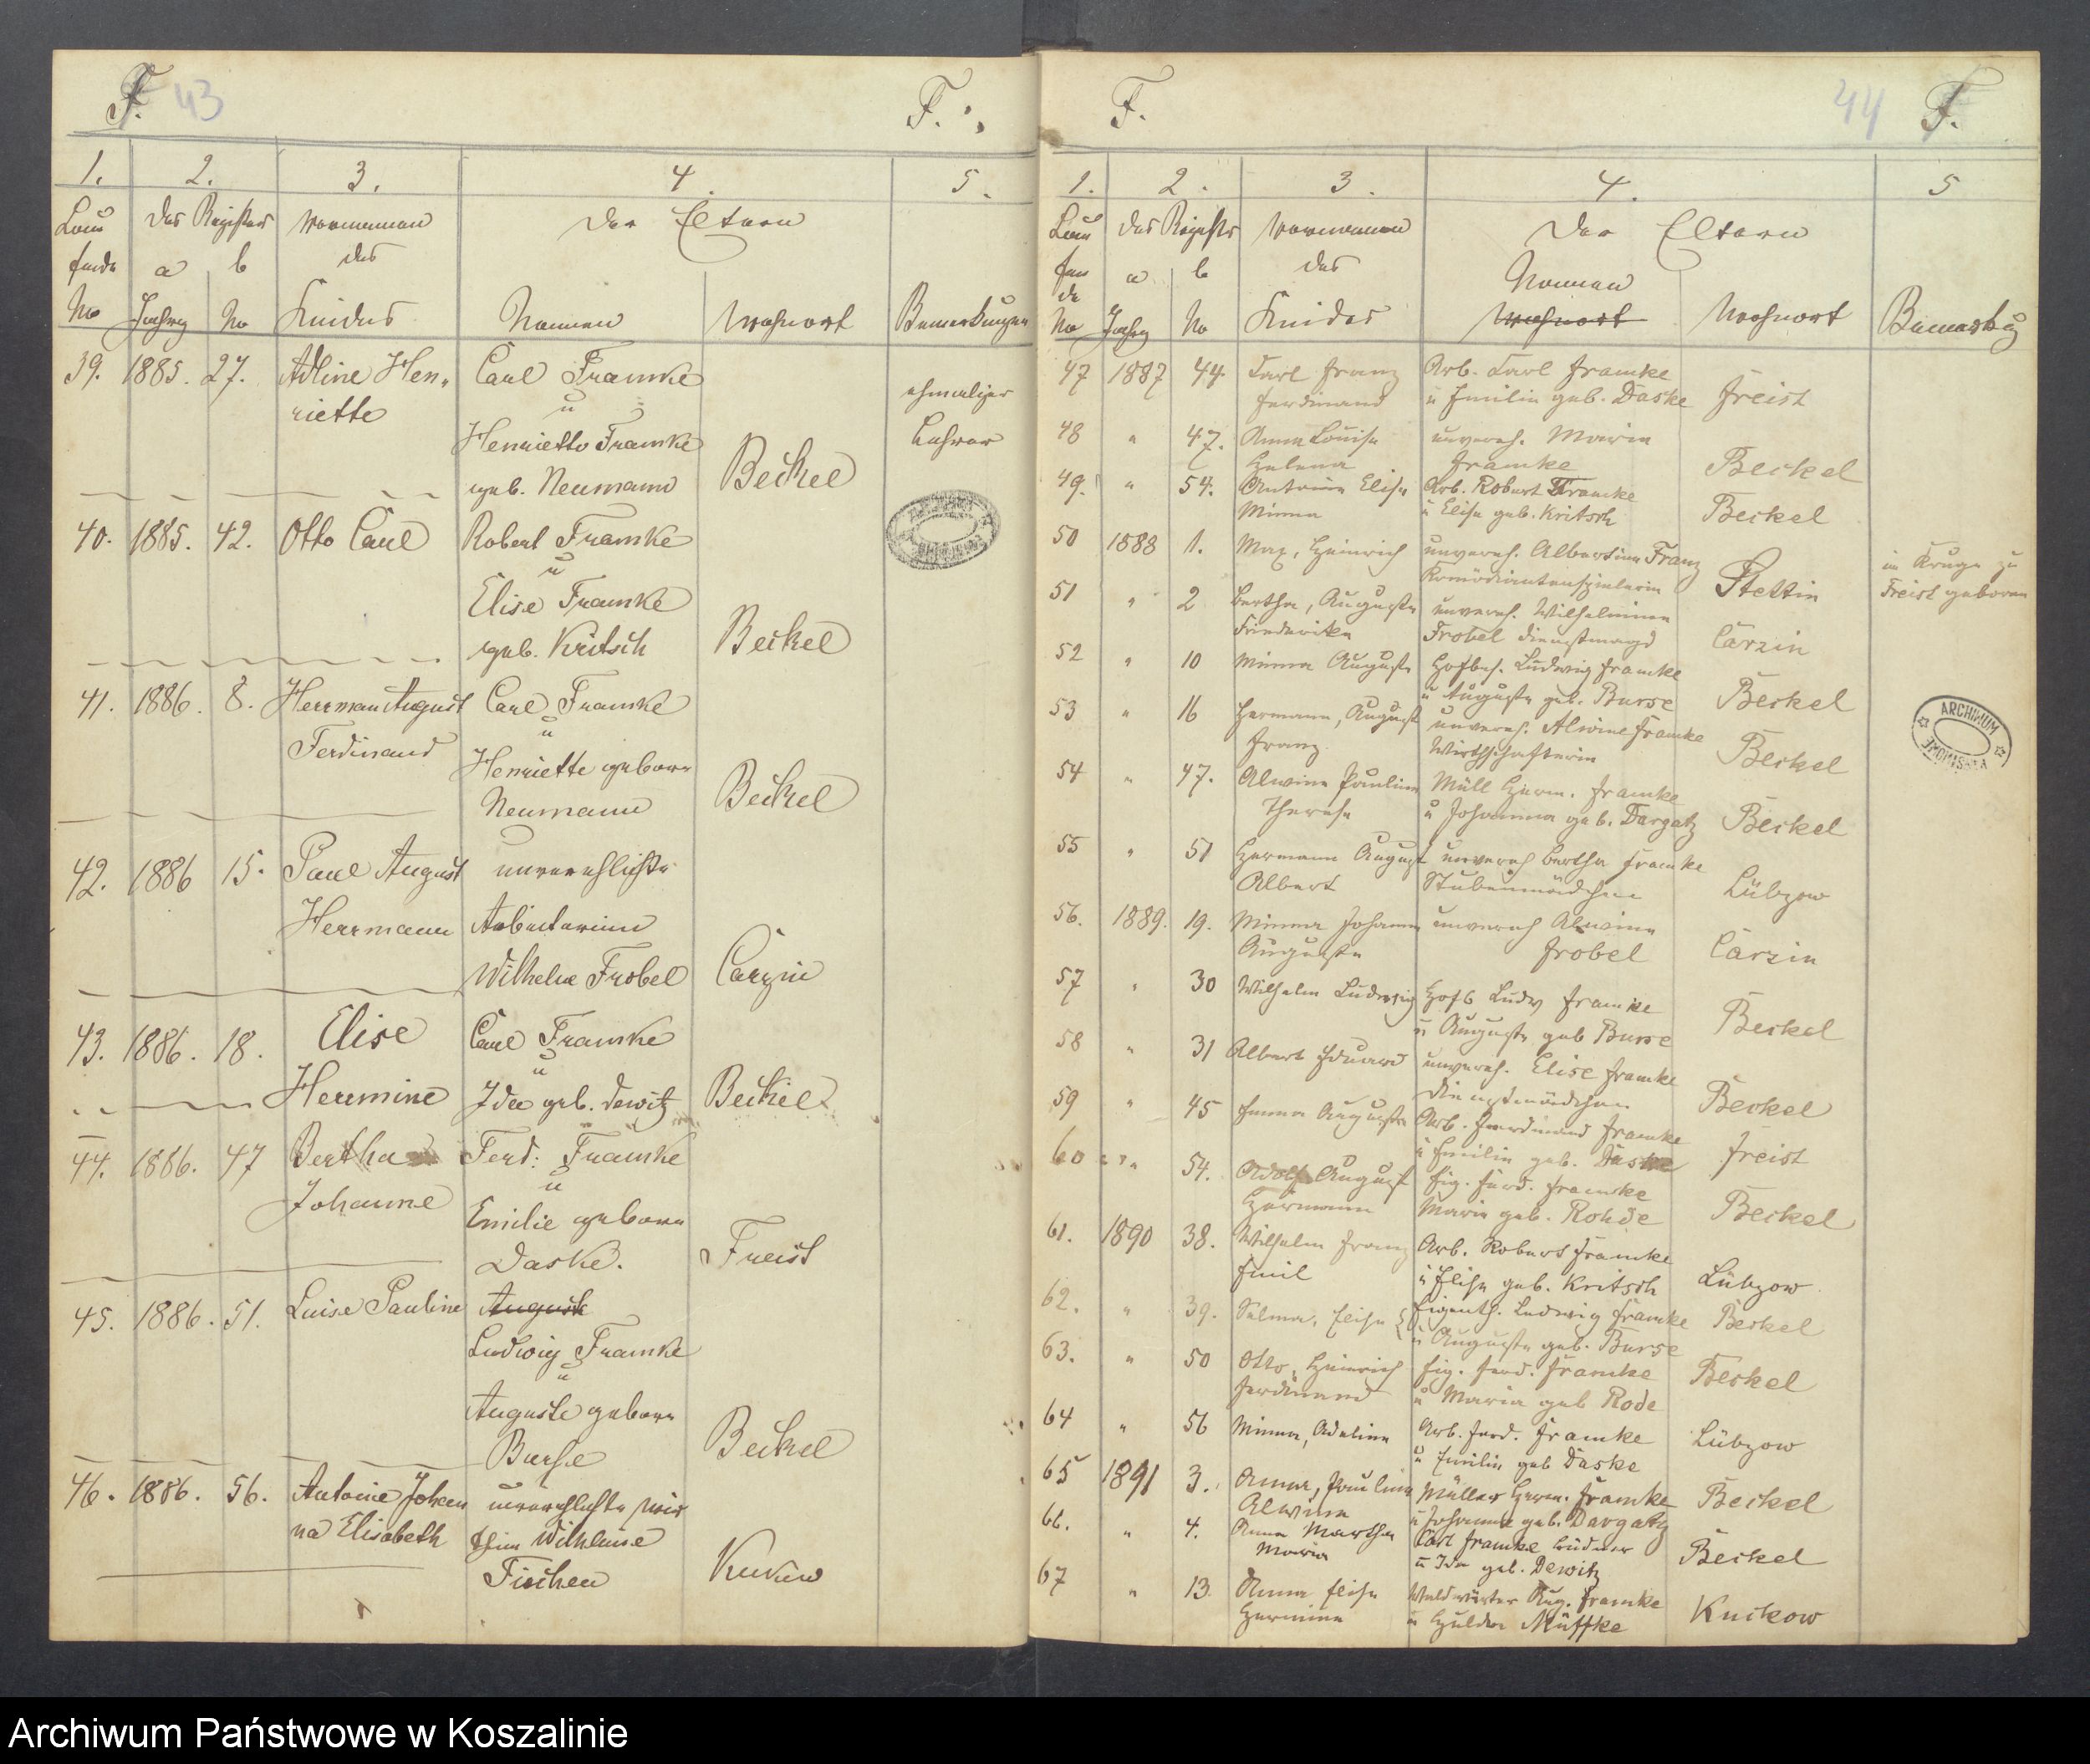 F. 43 F.
1. 2. 3. 4. 5.
Lau des Registers Vornamen Der Eltern
fende a b des
No Jahrg No Kindes Namen Wohnort Bemerkungen
39. 1885. 27. Adline Hen- Carl Framke
ehmaliger
riette u
Lehrer
Henriette Framke
geb. Neumann Beckel
40. 1885. 42. Otto Carl Robert Framke
u
Elise Framke
geb. Kritsch Beckel
41. 1886. 8. Herrman August Carl Framke
Ferdinand u
Henriette geborne
Neumann Beckel
42. 1886 15. Paul August unverehlichte
Herrmann Arbeiterinn
Wilhelm Frobel Carzin
43. 1886. 18. Elise Carl Framke
u
Hermine Ida geb. Dewitz Beckel
44. 1886. 47 Bertha Ferd: Framke
Johanne u
Emilie geborne
Daske. Freist
45. 1886. 51. Luise Pauline August
Ludwig Framke
u
Auguste geborne
Burse Beckel
46. 1886. 56. Antonie Johan unverehlichte Wir
na Elisabeth thin Wilhelmine
Fischer Kukow
F. 44 F.
1. 2. 3. 4. 5
Lau des Registers Vornamen Der Eltern
fen a b des Namen
de
No Jahrg No Kindes Wohnort Wohnort Bemerkg
47 1887 44. Carl Franz Arb. Carl Framke
Ferdinand u Emilie geb. Daske Freist
48 " 47. Anna Louise unvereh. Maria
Helena Framke Beckel
49. " 54. Antonie Elise Arb. Robert Framke
Minna u Elise geb. Kritsch Beckel
50 1888 1. Max, Heinrich unvereh. Albertine Franz im Kruge zu
Komödiantenspielerin Stettin Freist geboren
51 " 2 Bertha, Auguste unvereh. Wilhelmine
Friederike Frobel Dienstmagd Carzin
52 " 10 Minna Auguste Hofbes. Ludwig Framke
u Auguste geb. Burse Beckel
53 " 16 Hermann, August unvereh. Alwine Framke
Franz Wirthschafterin Beckel
54 " 47. Alwine Pauline Müll Herm. Framke
Therese u Johanna geb. Dargatz Beckel
55 " 51 Hermann August unvereh Bertha Framke
Albert Stubenmädchen Lübzow
56. 1889. 19. Minna Johanne unvereh Alwine
Auguste Frobel Carzin
57 " 30 Wilhelm Ludwig Hofb Ludw Framke
u Auguste geb Burse Beckel
58 " 31 Albert Eduard unvereh. Elise Framke
Dienstmädchen Beckel
59 " 45 Emma Auguste Arb. Ferdinand Framke
u Emilie geb. Daske Freist
60 " 54. Adolf August Eig. Ferd. Framke
Hermann Marie geb. Rohde Beckel
61. 1890 38. Wilhelm Franz Arb. Robert Framke
Emil u Elise geb. Kritsch Lübzow
62. " 39. Selma, Elise Eigenth. Ludwig Framke Beckel
u Auguste geb. Burse
63. " 50 Otto, Heinrich Eig. Ferd. Framke
Ferdinand u Maria geb Rode Beckel
64 " 56 Minna, Adeline Arb. Ferd. Framke
u Emilie geb Daske Lübzow
65 1891 3. Anna, Pauline Müller Herm. Framke
Alwine u Johanna geb. Dargatz Beckel
66. " 4. Anna Martha Carl Framke
Maria u Ida geb. Dewitz Beckel
67 " 13 Anna Elise Waldwärter Aug. Framke
Hermine u Hulda Müffke Kuckow
ARCHIWUM
Archiwum Państwowe w Koszalinie